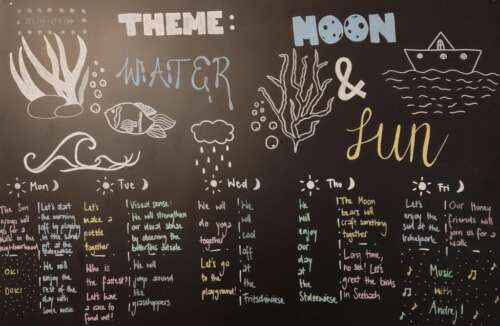 THEME:
MOON
WATER
&
SUN
Mon
Tue
Wed
Thu
Fri
The Sun
group will
go for a
walk in the
neighbourhood
OKI
DOKI
Let's start
the morning
by playing
at the
We will
enjoy the
rest of the
day with
some music
Let's
make a
puzzle
together
Who is
the fastest?!
Let's have
a race to
find out!
Visual sense:
We will strengthen
our visual sense
by observing the
butterflies outside
We will
jump around
like
grasshoppers
We will
do yoga
together
Let's go
to the
playground!
We
will
cool
off
at the
Fritschiwiese
We
will
enjoy
our
day
at the
Stateenwiese
The Moon
bears will
craft something
together
Long time,
no see! Let's
greet the birds
in Seebach
Let's
enjoy the
sun at the
Irchelpark
Our Honey
friends will
join us for a
walk
Music
with
Andrej!